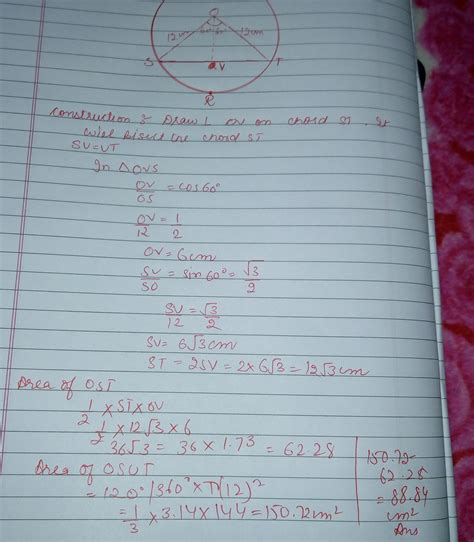 O
12cm 60° 60° 12cm
S V T
R
Construction: Draw ⊥ OV on chord ST. It
will bisect the chord ST
SV=VT
In △OVS
OV/OS = cos60°
OV/12 = 1/2
OV = 6cm
SV/SO = sin 60° = √3/2
SV/12 = √3/2
SV = 6√3 cm
ST = 2SV = 2 x 6√3 = 12√3 cm
Area of OST
1/2 x ST x OV
1/2 x 12√3 x 6
36√3 = 36 x 1.73 = 62.28
Area of OSUT
= 120°/360° x π(12)²
= 1/3 x 3.14 x 144 = 150.72 cm²
150.72-
62.28
= 88.84
cm²
Ans